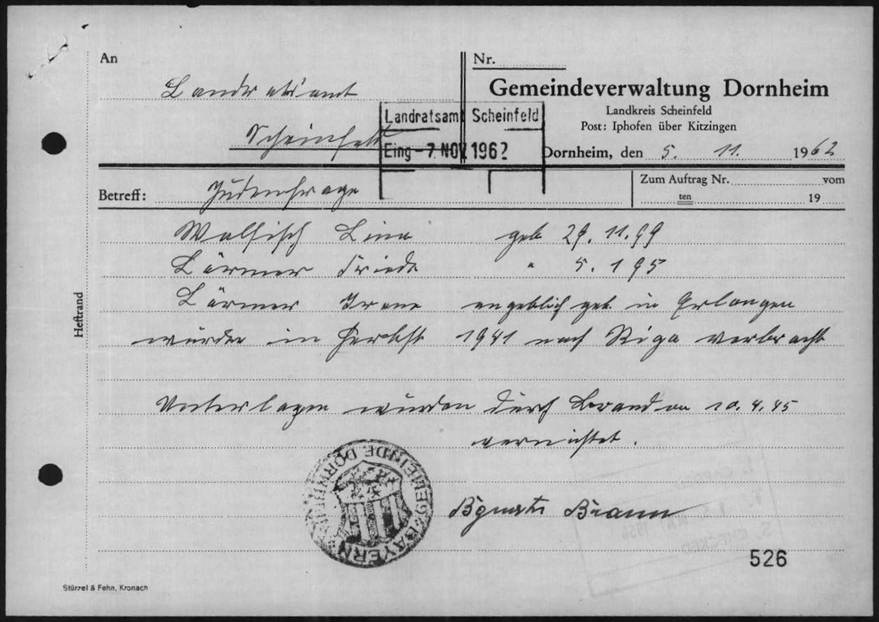 An
Landratsamt
Scheinfeld
Nr.
Gemeindeverwaltung Dornheim
Landkreis Scheinfeld
Post: Iphofen über Kitzingen
Landratsamt Scheinfeld
Eing - 7. NOV 1962
Dornheim, den 5. 11. 1962
Betreff: Judenfrage
Zum Auftrag Nr. vom
ten 19
Walfisch Lina geb 29. 11. 99
Lärmer Frieda " 5. 1 95
Lärmer Irene angeblich geb. in Erlangen
wurden im Herbst 1941 nach Riga verbracht
Unterlagen wurden durch Brand am 10. 4. 45
vernichtet.
Heftrand
BAYERN GEMEINDE DORNHEIM
Bgmstr Braun
526
Stürzel & Fehn, Kronach